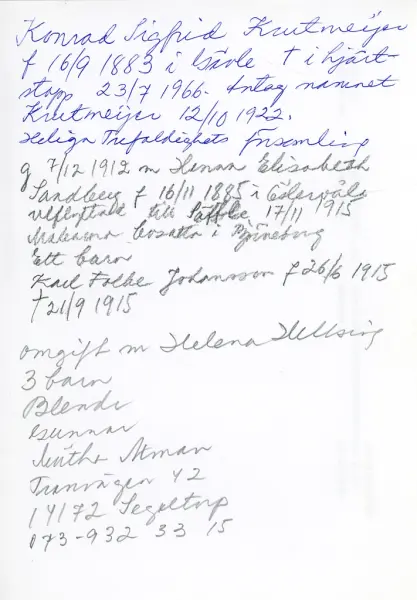 Konrad Sigfrid Krutmeijer
f 16/9 1883 i Gävle † i hjärt-
stopp 23/7 1966. Antog namnet
Krutmeijer 12/10 1922.
Heliga Trefaldighets församling
g 7/12 1912 m Hanna Elisabeth
Sandberg f 16/11 1885 i Östervåla
utflyttade till 17/11 1915
Makarna bosatta i Björneborg
Ett barn
Karl Folke Johansson f 26/6 1915
† 21/9 1915
omgift m Helena Hellsing
3 barn
Blenda
Gunnar
Tranvägen 42
14172 Segeltorp
073-932 33 15